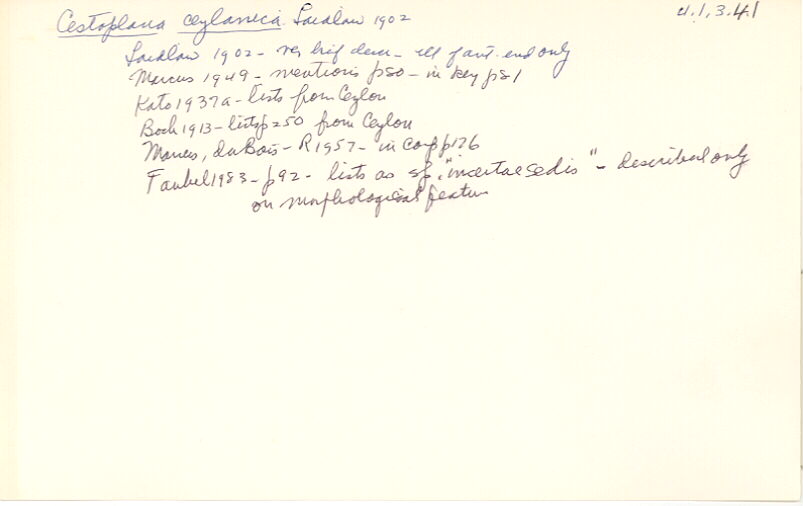 Cestoplana ceylanica Laidlaw 1902 4.1.3.4.1
Laidlaw 1902 - very brief descr - ill of ant. end only
Marcus 1949 - mentions p80 - in key p81
Kato 1937a - lists from Ceylon
Bock 1913 - lists p250 from Ceylon
Marcus, du Bois-R 1957 - in comp p126
Faubel 1983 - p92 - lists as sp. "incertae sedis" - described only
on morphological feature